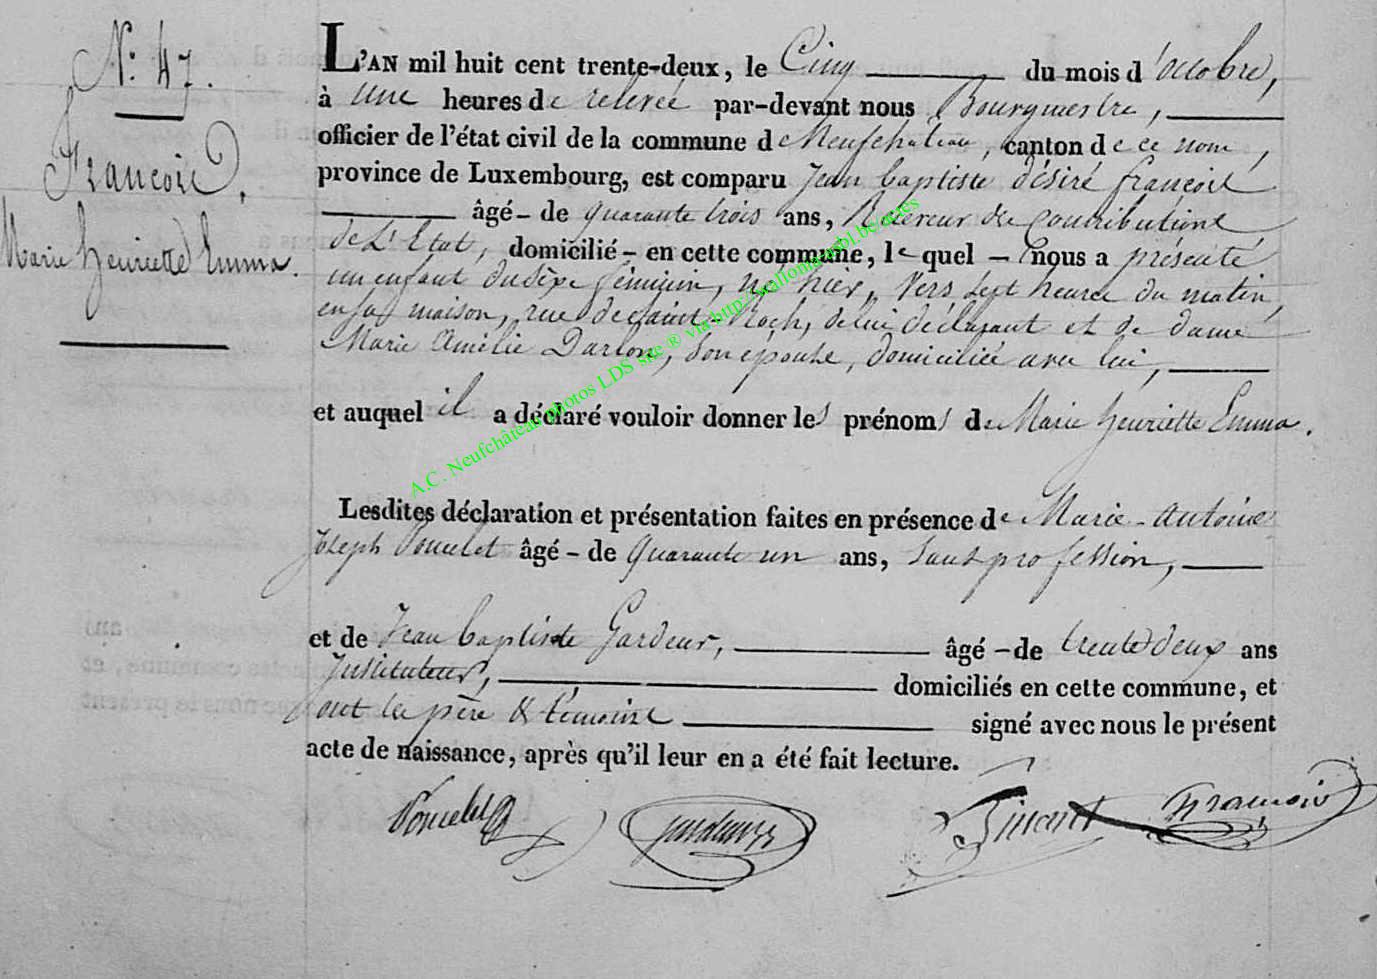 N.º 47.
François,
Marie henriette Emma.
L'AN mil huit cent trente-deux, le Cinq du mois d'octobre,
à une heures de relevée par-devant nous Bourgmestre,
officier de l'état civil de la commune de Neufchateau, canton de ce nom,
province de Luxembourg, est comparu Jean baptiste désiré françois
âgé - de quarante trois ans, Receveur des Contributions
de L'Etat, domicilié - en cette commune, lequel - nous a présenté
un enfant du sexe féminin, né hier, vers sept heures du matin,
en sa maison, rue de saint-Roch, de lui déclarant et de dame
Marie Amélie Darlon, son épouse, domiciliée avec lui,
et auquel il a déclaré vouloir donner les prénoms de Marie henriette Emma.
Lesdites déclaration et présentation faites en présence de Marie-antoine
Joseph Poncelet âgé - de quarante un ans, sans profession,
et de Jean baptiste Gardeur, âgé - de trente deux ans
instituteur, domiciliés en cette commune, et
ont les père & témoins signé avec nous le présent
acte de naissance, après qu'il leur en a été fait lecture.
Poncelet François
A.C. Neufchâteau photos LDS site ® via http://wallonia-mbl.be/actes